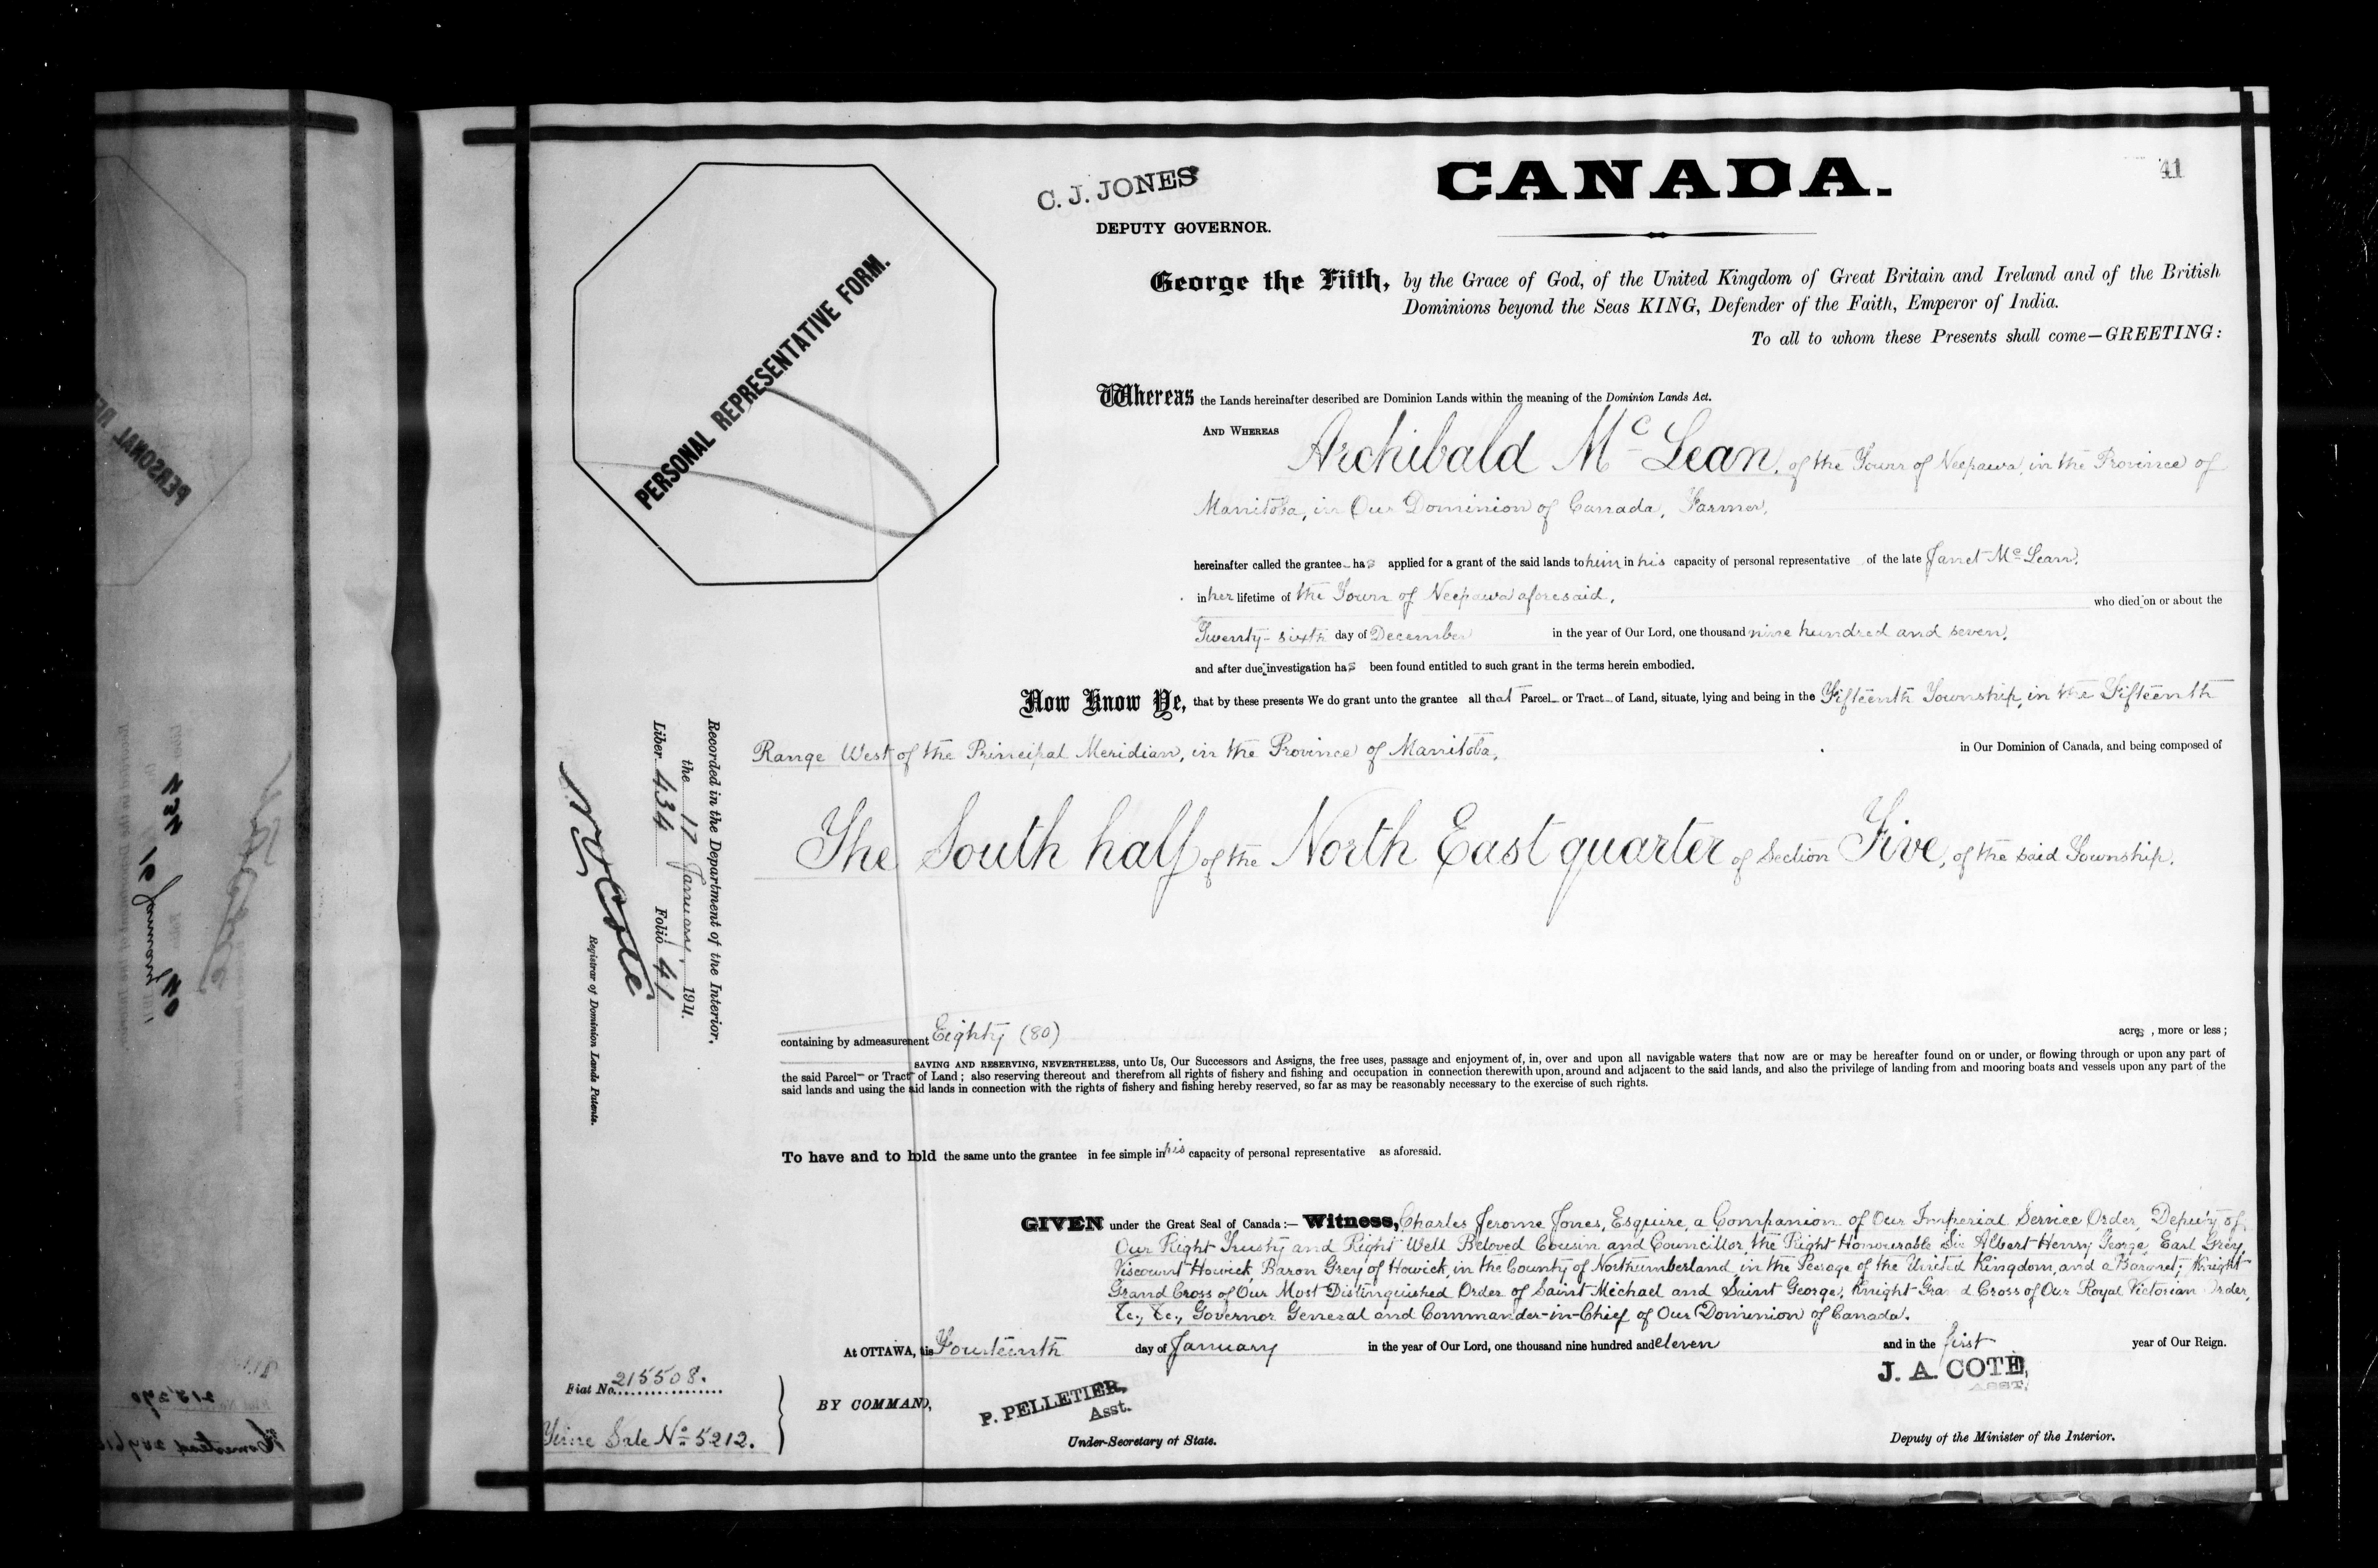 41
C. J. JONES
CANADA.
DEPUTY GOVERNOR.
PERSONAL REPRESENTATIVE FORM.
George the Fifth, by the Grace of God, of the United Kingdom of Great Britain and Ireland and of the British
Dominions beyond the Seas KING, Defender of the Faith, Emperor of India.
To all to whom these Presents shall come—GREETING:
Whereas the Lands hereinafter described are Dominion Lands within the meaning of the Dominion Lands Act.
AND WHEREAS Archibald McLean, of the Town of Neepawa, in the Province of
Manitoba, in Our Dominion of Canada, Farmer,
hereinafter called the grantee has applied for a grant of the said lands to him in his capacity of personal representative of the late Janet McLean,
in her lifetime of the Town of Neepawa aforesaid, who died on or about the
Twenty-sixth day of December in the year of Our Lord, one thousand nine hundred and seven,
and after due investigation has been found entitled to such grant in the terms herein embodied.
Now Know Ye, that by these presents We do grant unto the grantee all that Parcel or Tract of Land, situate, lying and being in the Fifteenth Township, in the Fifteenth
Range West of the Principal Meridian, in the Province of Manitoba, in Our Dominion of Canada, and being composed of
The South half of the North East quarter of Section Five, of the said Township.
containing by admeasurement Eighty (80) acres, more or less;
SAVING AND RESERVING, NEVERTHELESS, unto Us, Our Successors and Assigns, the free uses, passage and enjoyment of, in, over and upon all navigable waters that now are or may be hereafter found on or under, or flowing through or upon any part of
the said Parcel or Tract of Land; also reserving thereout and therefrom all rights of fishery and fishing and occupation in connection therewith upon, around and adjacent to the said lands, and also the privilege of landing from and mooring boats and vessels upon any part of the
said lands and using the said lands in connection with the rights of fishery and fishing hereby reserved, so far as may be reasonably necessary to the exercise of such rights.
To have and to hold the same unto the grantee in fee simple in his capacity of personal representative as aforesaid.
GIVEN under the Great Seal of Canada:— Witness, Charles Jerome Jones, Esquire, a Companion of Our Imperial Service Order, Deputy of
Our Right Trusty and Right Well Beloved Cousin and Councillor, the Right Honourable Sir Albert Henry George, Earl Grey,
Viscount Howick, Baron Grey of Howick, in the County of Northumberland, in the Peerage of the United Kingdom, and a Baronet; Knight
Grand Cross of Our Most Distinguished Order of Saint Michael and Saint George, Knight Grand Cross of Our Royal Victorian Order,
&c., &c., Governor General and Commander-in-Chief of Our Dominion of Canada.
At OTTAWA, this Fourteenth day of January in the year of Our Lord, one thousand nine hundred and eleven and in the first year of Our Reign.
J. A. COTE,
ASST.
Deputy of the Minister of the Interior.
BY COMMAND,
P. PELLETIER,
Asst.
Under-Secretary of State.
Fiat No. 215508.
Sale No 5212.
Recorded in the Department of the Interior,
the 17 January, 1911.
Liber 434 Folio 41
Côté
Registrar of Dominion Lands Patents.